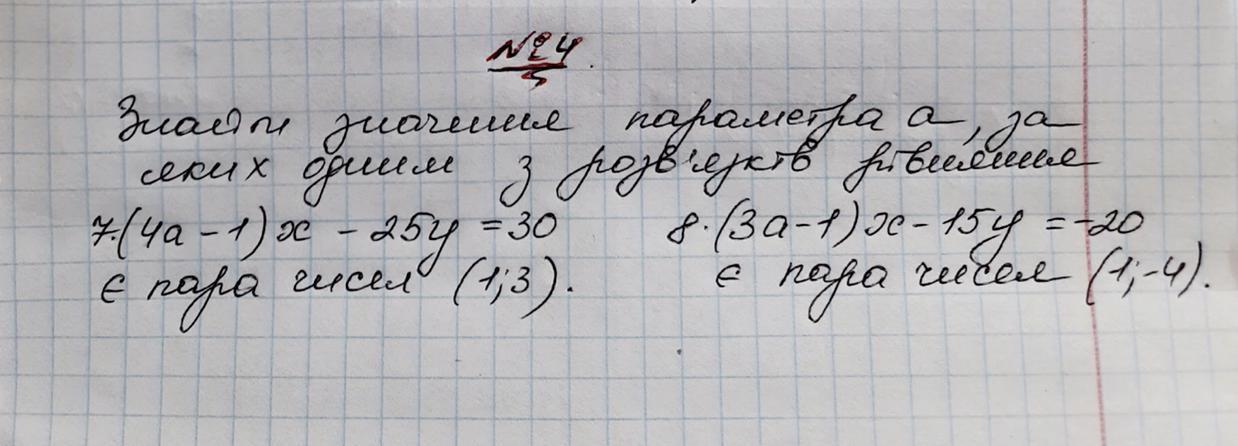 №4
Знайти значення параметра a, за
яких одним з розв'язків рівняння
7.(4a - 1)x - 25y = 30 8.(3a-1)x - 15y = -20
є пара чисел (1;3). є пара чисел (1;-4).